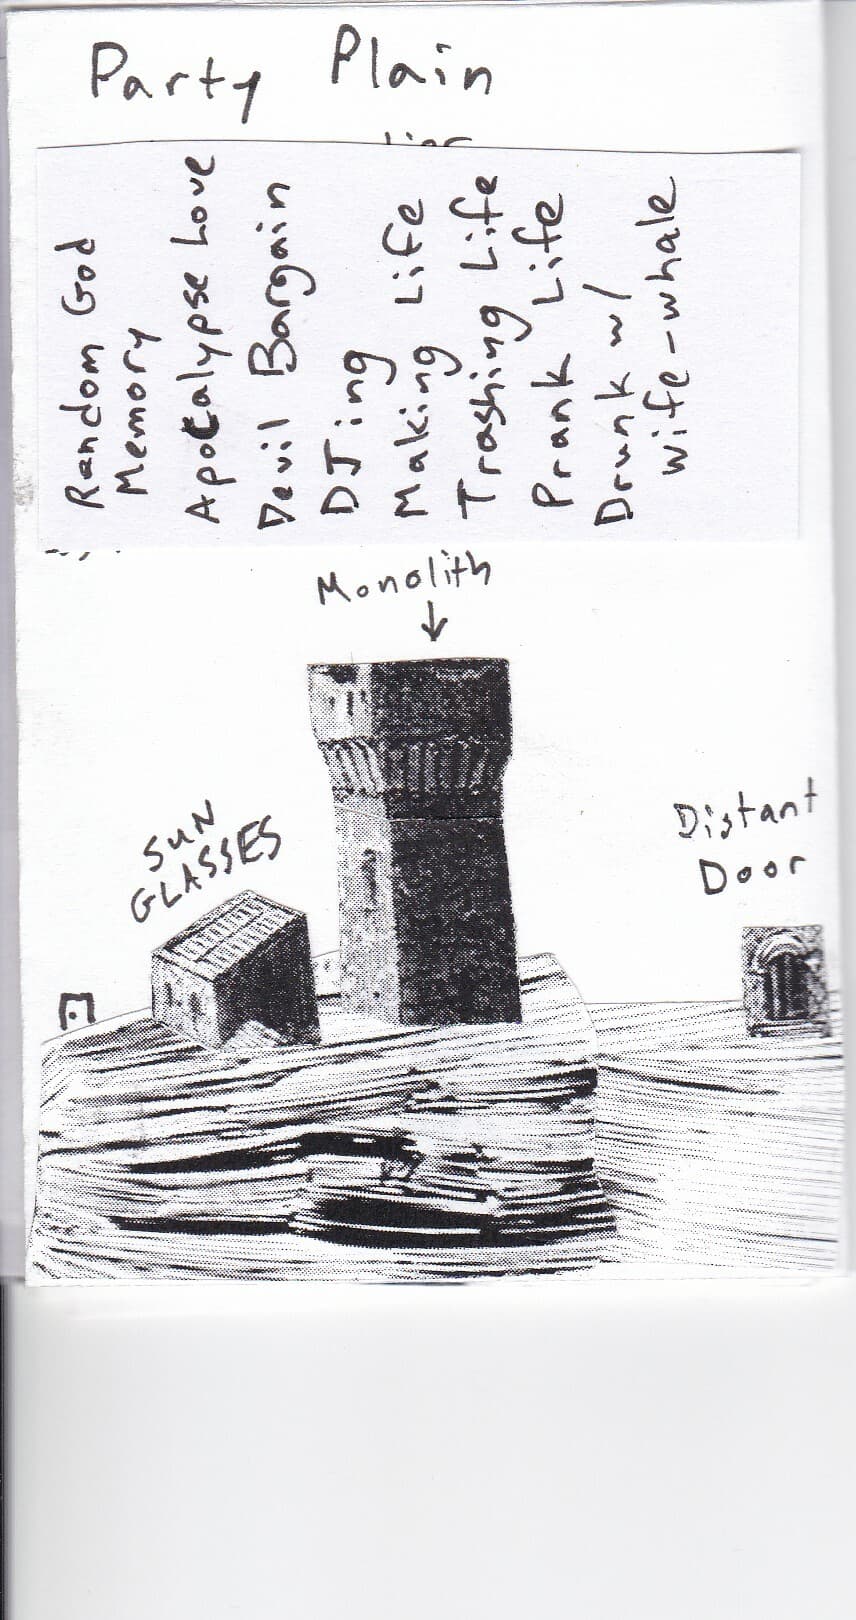 Party Plain
Random God
Memory
Apocalypse Love
Devil Bargain
DJing
Making Life
Trashing Life
Prank Life
Drunk w/
wife-whale
Monolith
SUN
GLASSES
Distant
Door